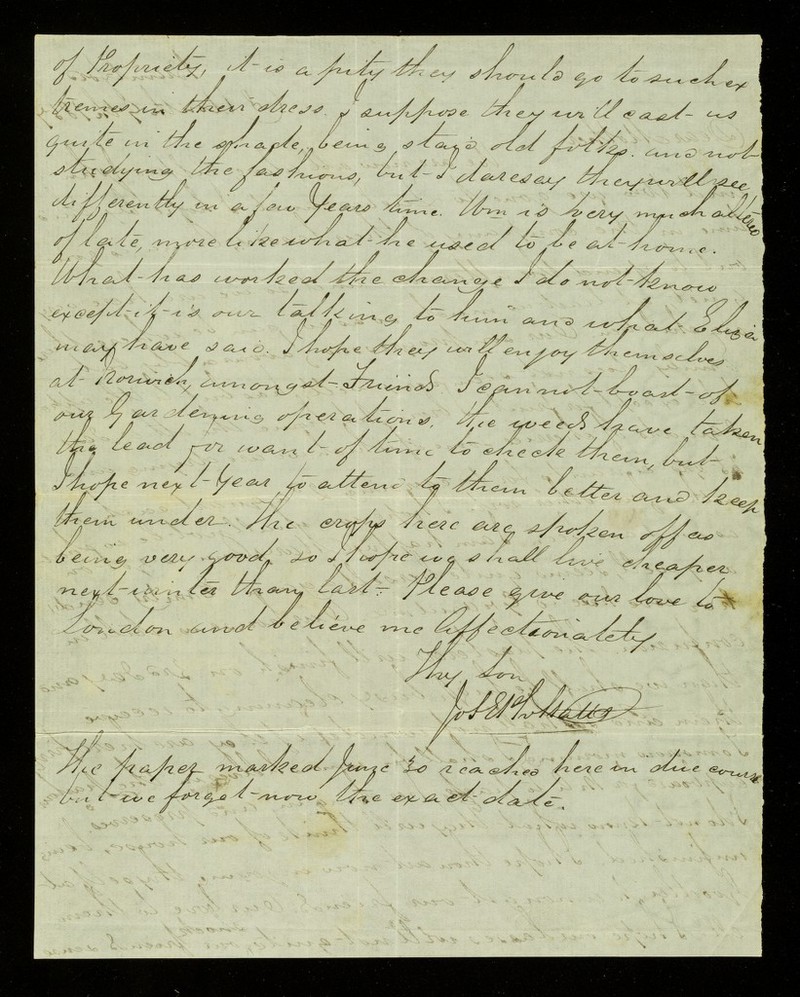 of Propriety, it is a pity they should go to such ex
tremes in their dress I suppose they will cast us
quite in the shade, being staid old folks. and not
studying the fashions, but I daresay they will see
differently in a few Years time. Wm is very much altered
of late, more like what he used to be at home.
What has worked the change I do not know
except it is our talking to him and what Eliza
may have said. I hope they will enjoy themselves
at Norwich amongst Friends I can not boast of
our Gardening operations. the weeds have taken
the lead for want of time to check them, but
I hope next Year to attend to them better and keep
them under. The crops here are spoken off as
being very good, so I hope we shall live cheaper
next winter than last - Please give our love to
London and believe me Affectionately
Thy Son
Joseph
The paper marked June 30 reached here in due course
but we forget now the exact date.